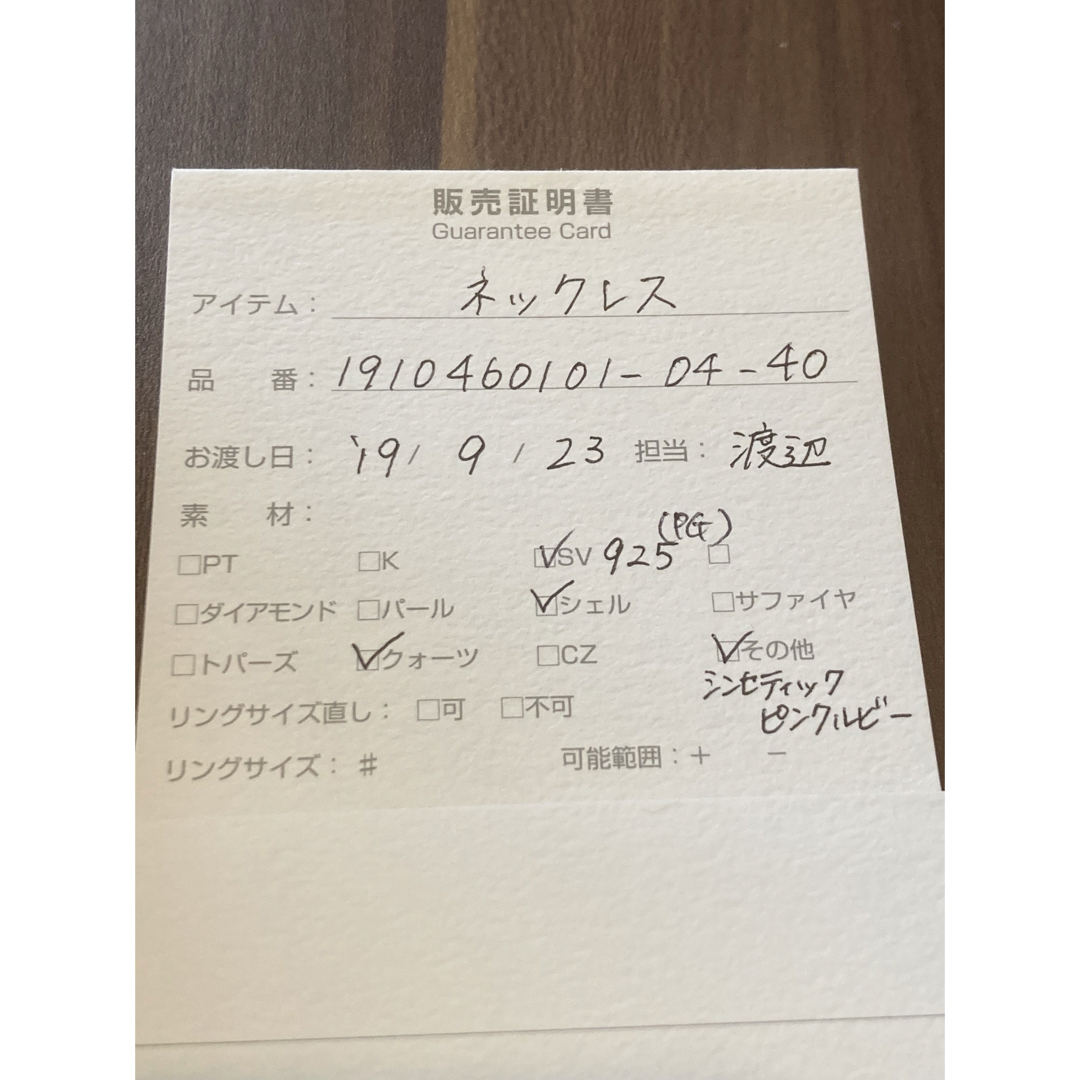 販売証明書
Guarantee Card
アイテム： ネックレス
品 番： 1910460101-04-40
お渡し日： '19/ 9 / 23 担当： 渡辺
素 材：
(PG)
□PT □K ☑SV 925 □
□ダイアモンド □パール ☑シェル □サファイヤ
□トパーズ ☑クォーツ □CZ ☑その他
シンセティック
ピンクルビー
リングサイズ直し： □可 □不可
リングサイズ： # 可能範囲：＋ －